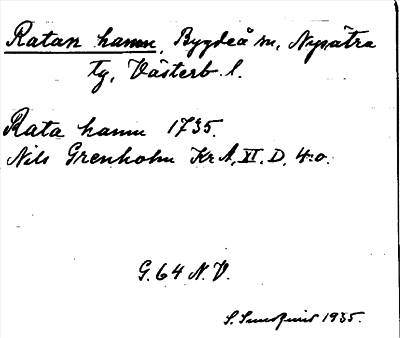 Ratan hamn, Bygdeå sn, Nysätra
tg, Västerb. l.
Rata hamn 1735.
Nils Grenholm KrA, XI. D, 4:o.
G. 64 N. V.
S. 1935.